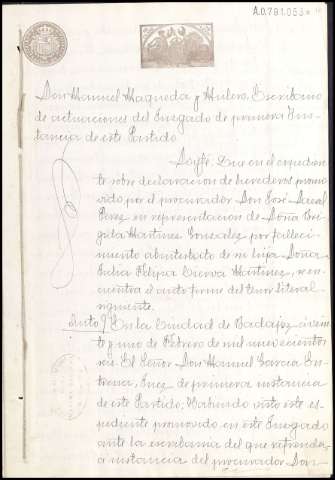 A.0.791.053
Don Manuel Maqueda y Mulero, Escribano
de actuaciones del Juzgado de primera Ins-
tancia de este Partido
Doy fe: Que en el expedien-
te sobre declaracion de herederos promo-
vido por el procurador Don José
Perez en representacion de Doña Brí-
gida Martinez Gonzalez por falleci-
miento abintestato de su hija Doña
Julia Felipa Cuerva Martinez, se en-
cuentra el auto firme del tenor literal si-
guiente.
Auto) En la Ciudad de Badajoz a vein-
te y uno de Febrero de mil novecientos
seis. El Señor Don Manuel Garcia En-
trena, Juez de primera instancia
de este Partido. Habiendo visto este es-
pediente promovido en este Juzgado
ante la escribania del que refrenda
a instancia del procurador Don